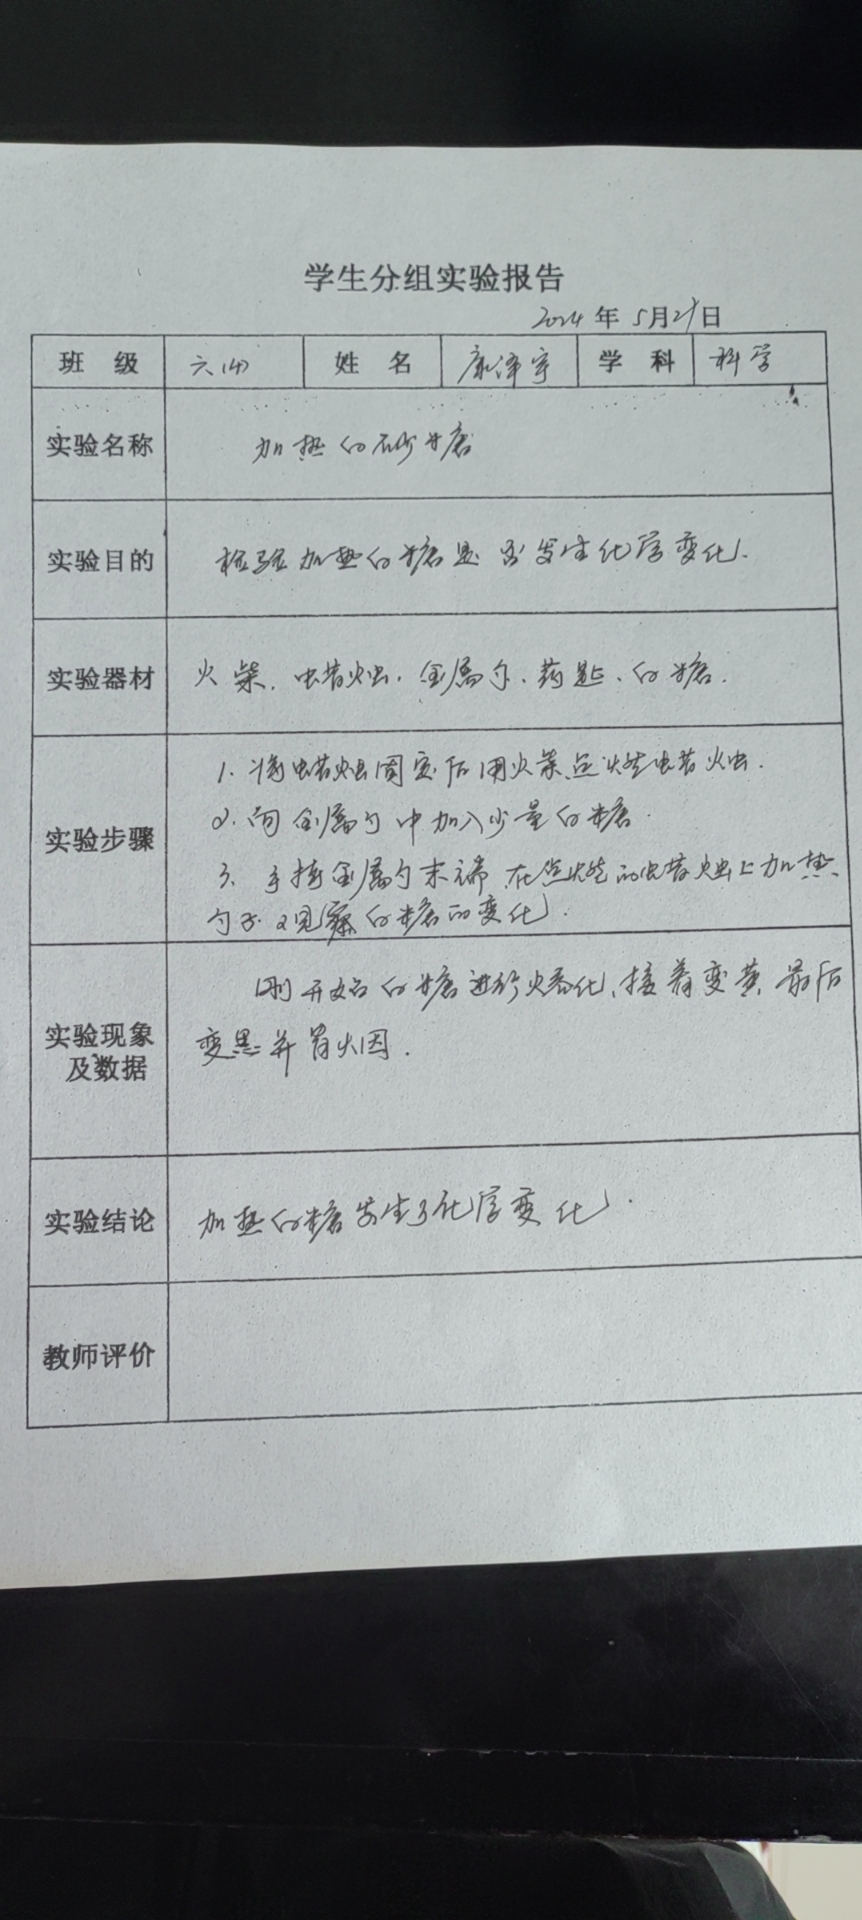 学生分组实验报告
2024年5月21日
班级 六(4) 姓名 康泽宇 学科 科学
实验名称 加热白砂糖
实验目的 检验加热白糖是否发生化学变化.
实验器材 火柴、蜡烛、金属勺、药匙、白糖.
实验步骤
1. 将蜡烛固定后用火柴点燃蜡烛.
2. 向金属勺中加入少量白糖.
3. 手持金属勺末端在点燃的蜡烛上加热
勺子观察白糖的变化.
实验现象及数据
刚开始白糖进行熔化、接着变黄、最后
变黑并冒烟.
实验结论 加热白糖发生了化学变化.
教师评价